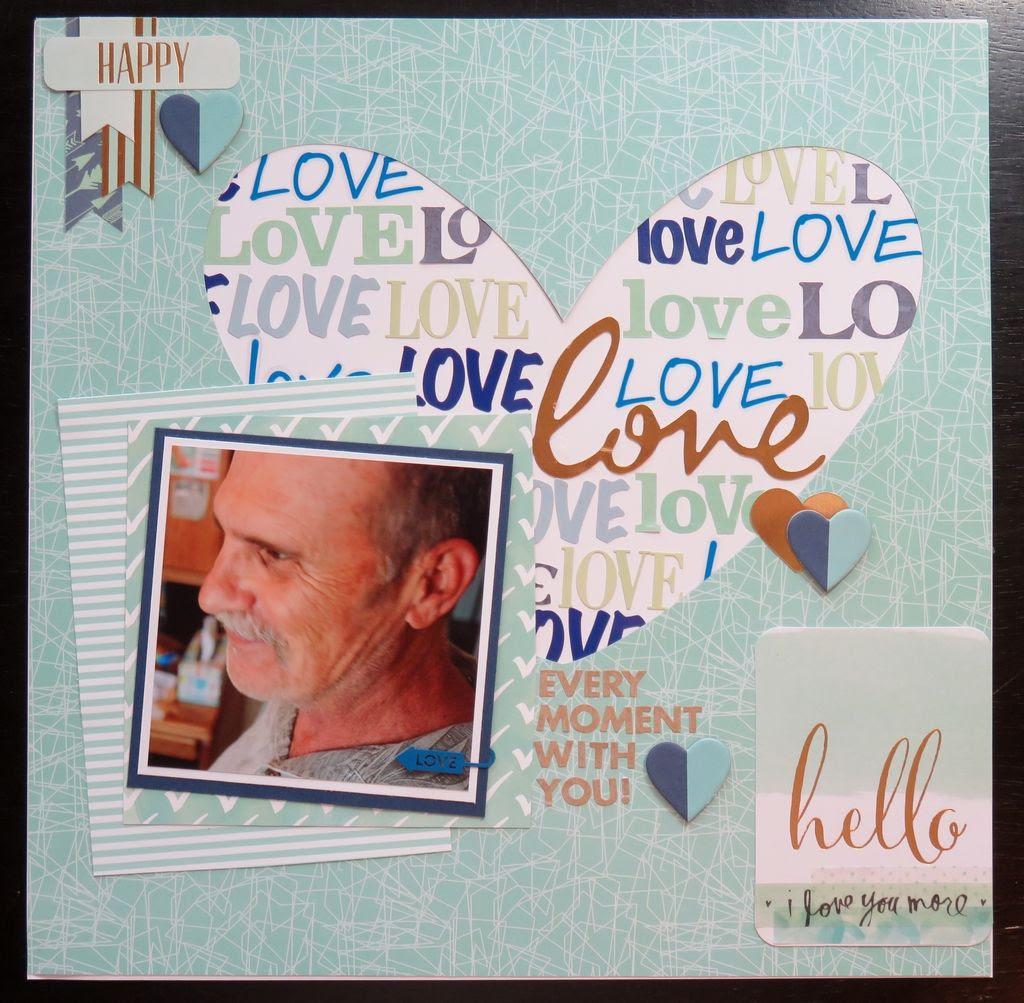 HAPPY
LOVE
LOVE LOVEL
LOVELO love LOVE
LOVE LOVE love LO
love LOVE LOVE lOV
love
OVE love
LOVE lOVE
OVE
EVERY
MOMENT
WITH
YOU!
LOVE
hello
i love you more